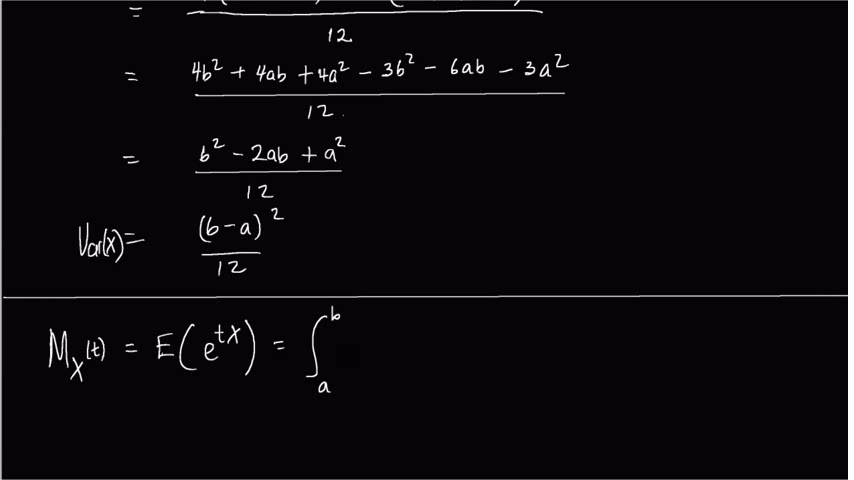 =
12
= 4b² + 4ab + 4a² - 3b² - 6ab - 3a²
12.
= b² - 2ab + a²
12
Var(X) = (b-a)²
12
M_X(t) = E(e^{tX}) = ∫_a^b